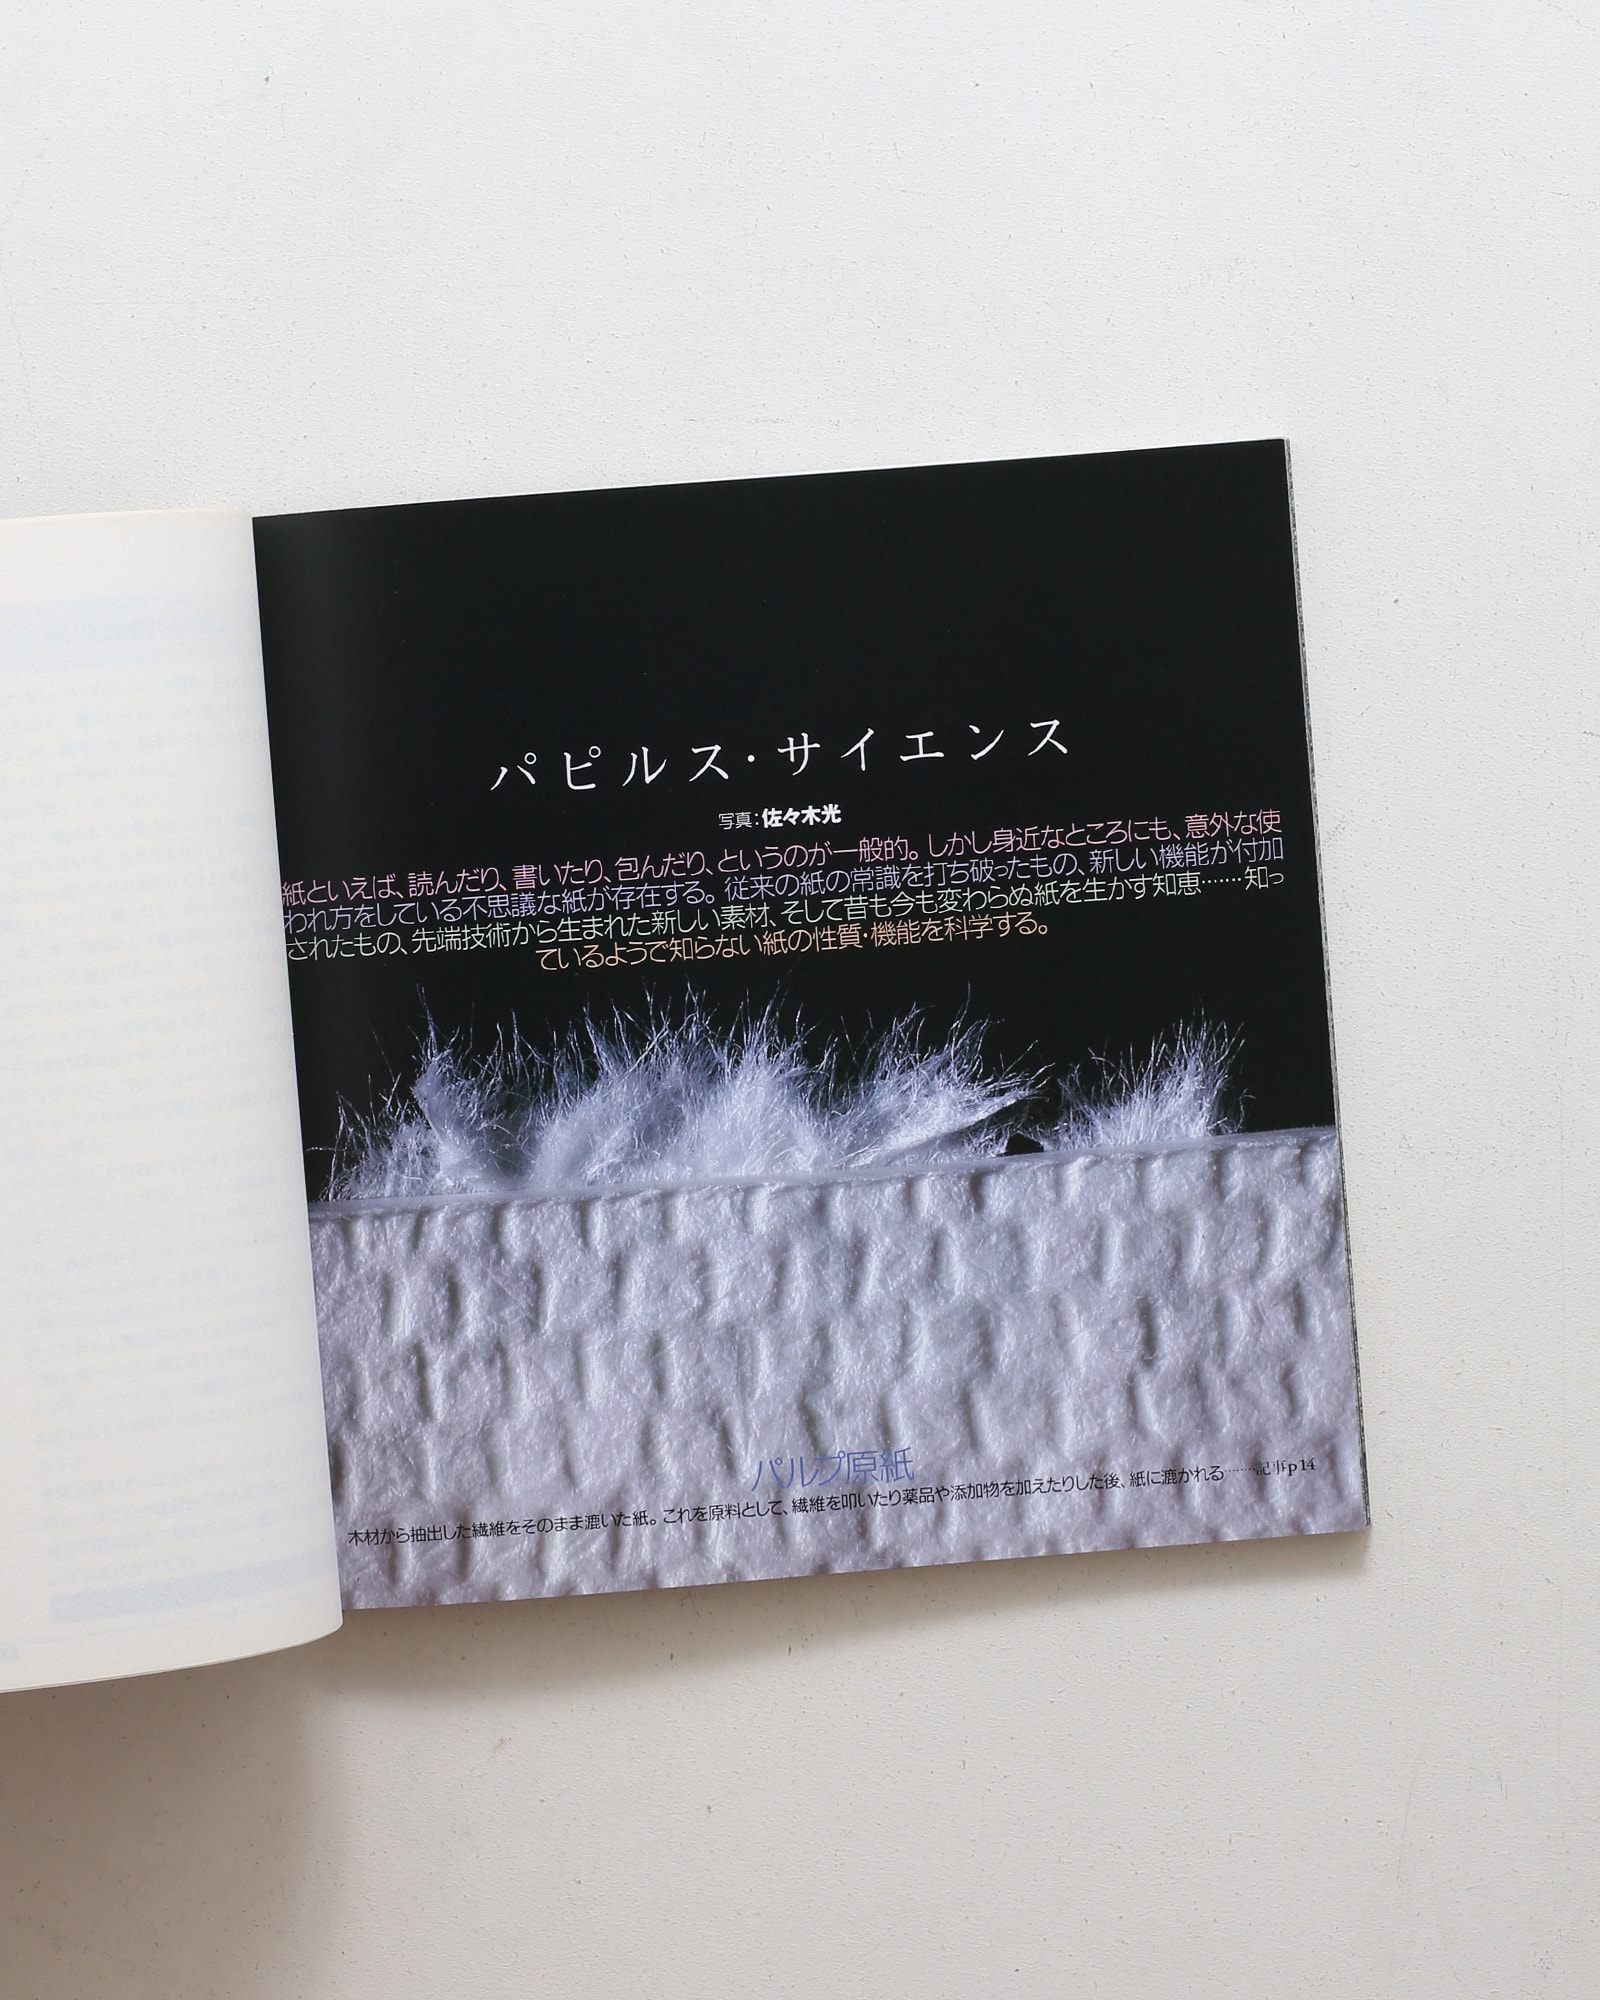 パピルス・サイエンス
写真：佐々木光
紙といえば、読んだり、書いたり、包んだり、というのが一般的。しかし身近なところにも、意外な使
われ方をしている不思議な紙が存在する。従来の紙の常識を打ち破ったもの、新しい機能が付加
されたもの、先端技術から生まれた新しい素材、そして昔も今も変わらぬ紙を生かす知恵……知っ
ているようで知らない紙の性質・機能を科学する。
パルプ原紙
木材から抽出した繊維をそのまま漉いた紙。これを原料として、繊維を叩いたり薬品や添加物を加えたりした後、紙に漉かれる……記事p14